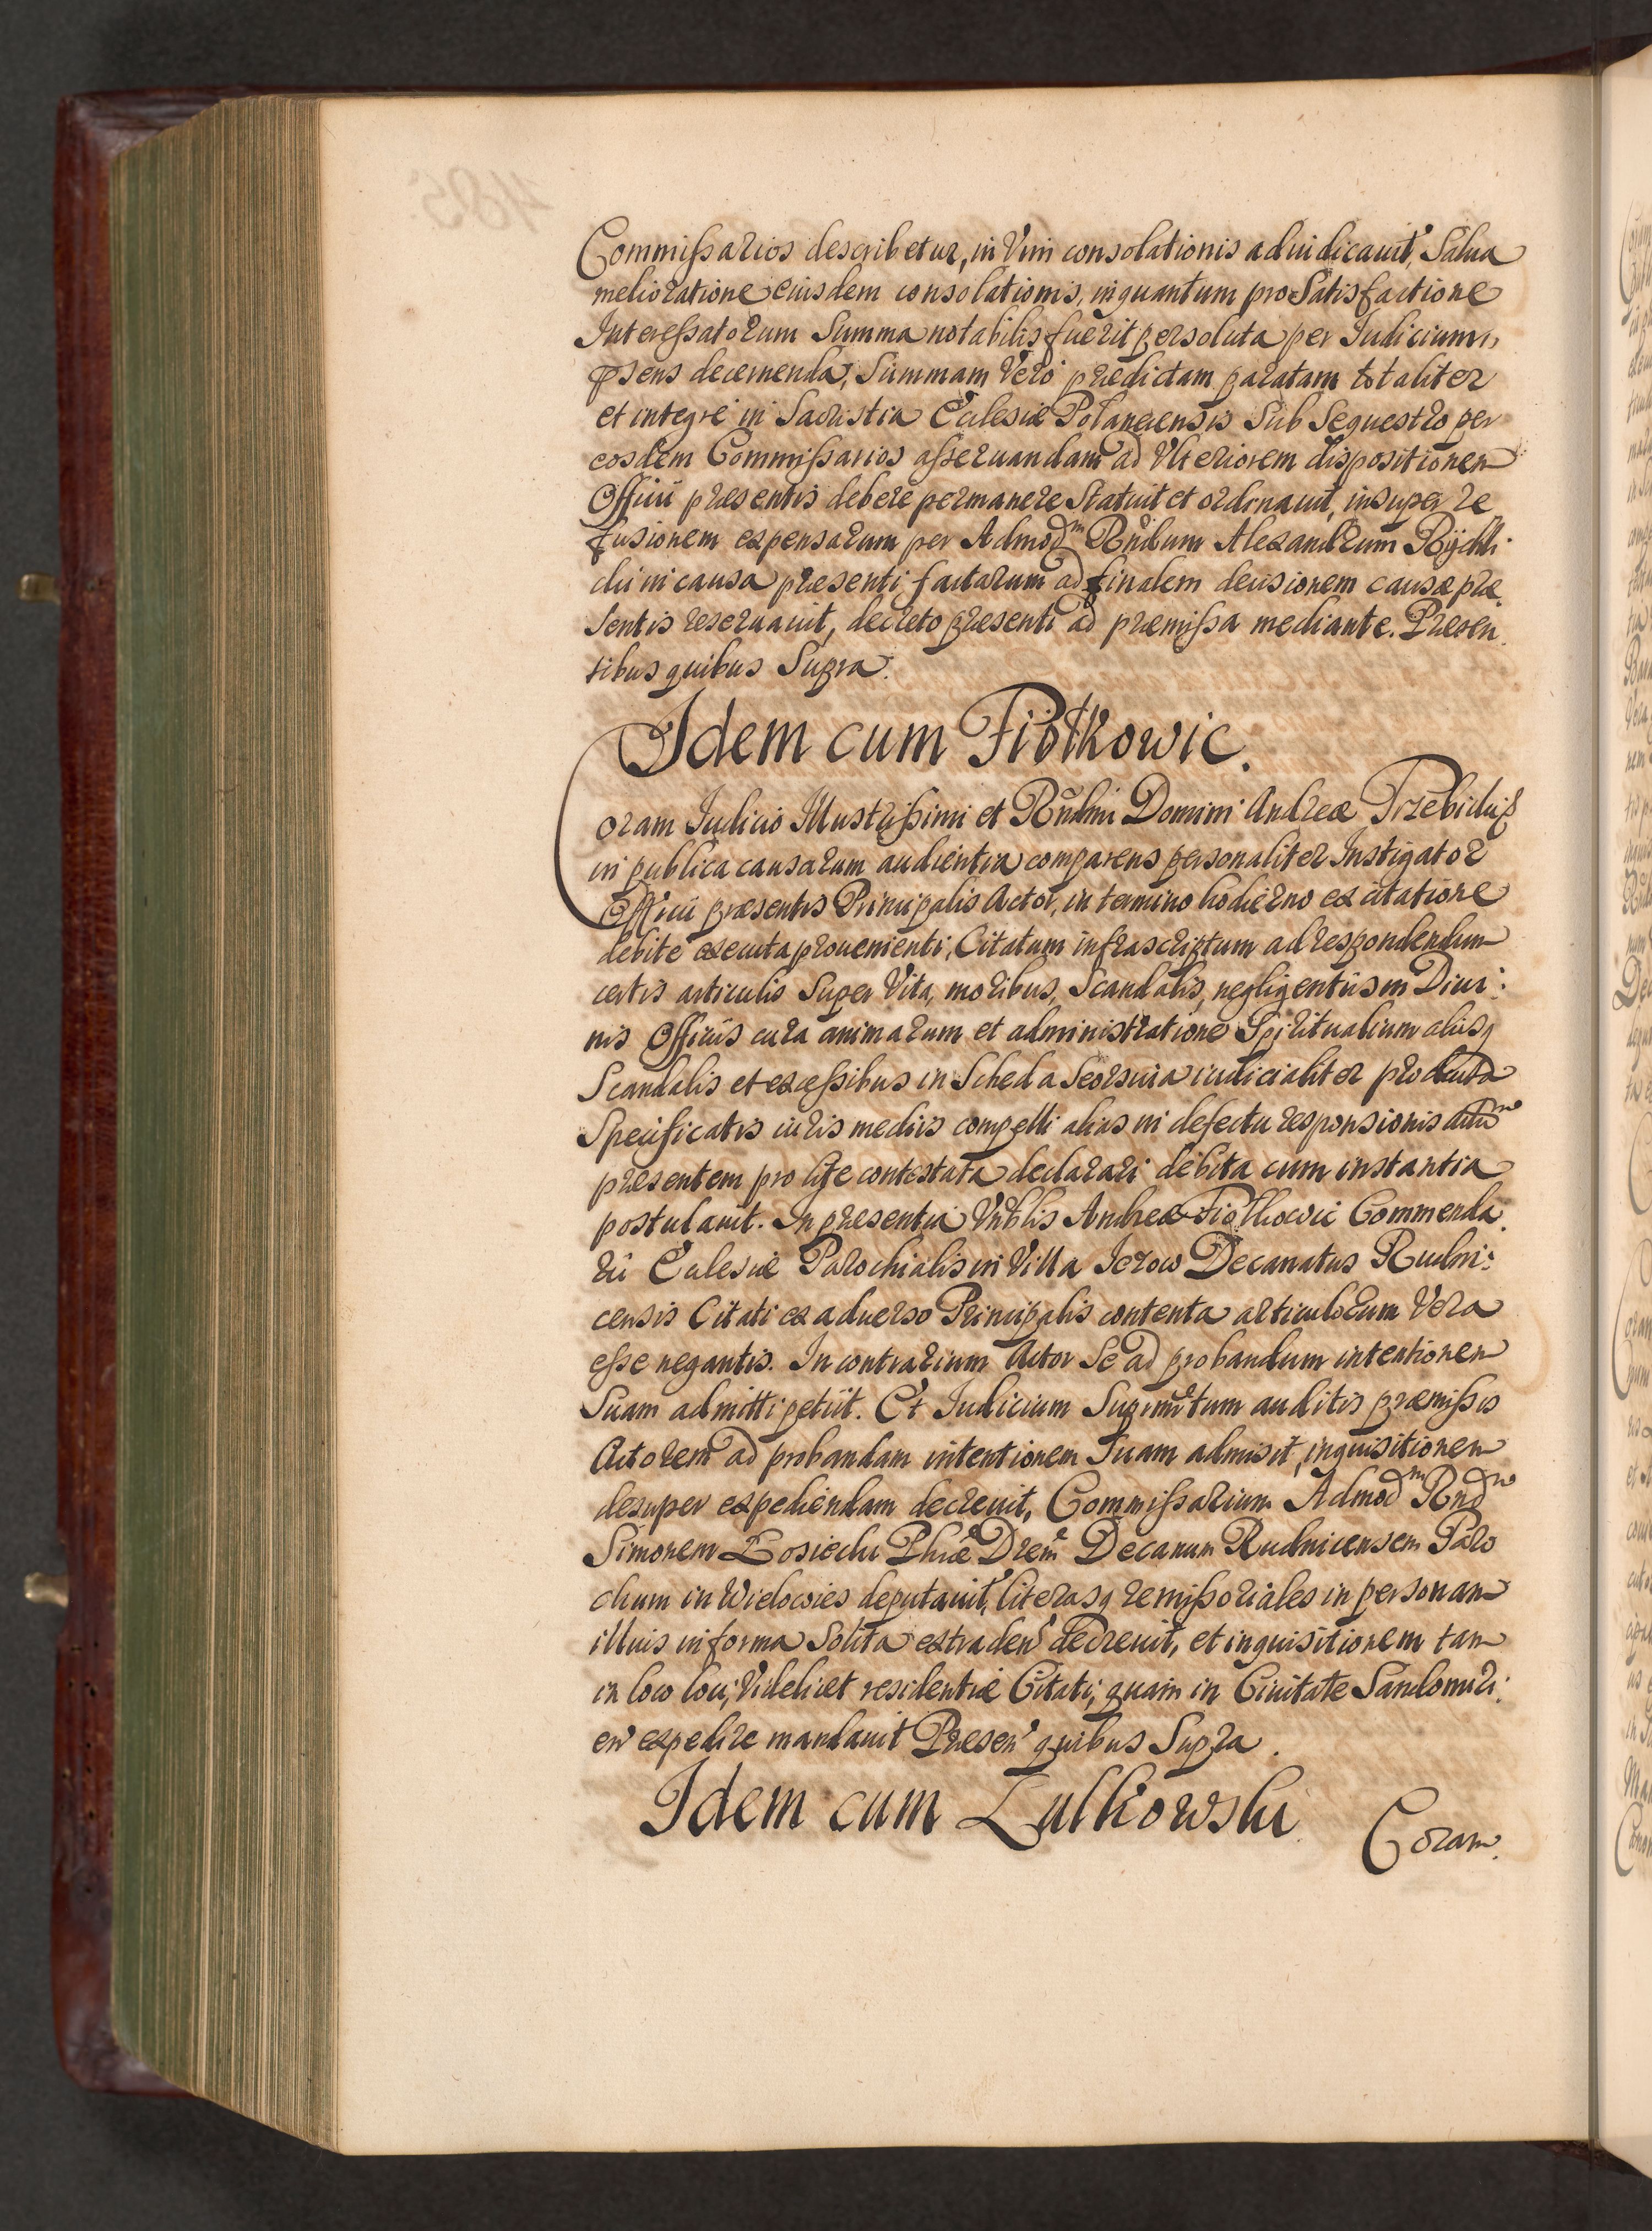 Commissarios describetur, in Vim consolationis adiudicauit, Salua
melioratione eiusdem consolationis, inquantum pro Satisfactione
Interessatorum Summa notabilis fuerit persoluta per Iudicium
psens decernenda, Summam Vero prædictam paratam totaliter
et integre in Sacristia Ecclesiæ Polanecensis Sub Sequestro per
eosdem Commissarios asseruandam ad Vlteriorem dispositionem
Officii præsentis debere permanere Statuit et ordinauit, insuper re
fusionem expensarum per Admodm Rndum Alexandrum Rychli
cki in causa præsenti factarum ad finalem decisionem causæ præ
sentis reseruauit, decreto præsenti ad præmissa mediante. Præsen
tibus quibus Supra.
Idem cum Fiołkowic.
Coram Iudicio Illustrissimi et Rndmi Domini Andreæ Trzebicki
in publica causarum audientia comparens personaliter Instigator
Officii præsentis Principalis Actor, in termino hodierno ex citatione
debite executa prouenienti, Citatum infrascriptum ad respondendum
certis articulis Super Vita, moribus, Scandalis, negligentiis in Diui:
nis Officiis cura animarum et administratione Spiritualium aliisq
Scandalis et excessibus in Scheda Seorsiua iudicialiter producta
Specificatis iuris mediis compelli alias in defectu responsionis
præsentem pro lite contestata declarari debita cum instantia
postulauit. In præsentia Vnblis Andreæ Fiołkowic Commenda
rii Ecclesiæ Parochialis in Villa Ierow Decanatus Rudni:
censis Citati ex aduerso Principalis contenta articulorum Vera
esse negantis. In contrarium Actor Se ad probandum intentionem
Suam admitti petiit. Et Iudicium auditis præmissis
Actorem ad probandam intentionem Suam admisit, inquisitionem
desuper expediendam decreuit, Commissarium Admodm Rndm
Simonem Łosiecki Phiæ Drem Decanum Rudnicensem Paro
chum in Wielowies deputauit, literasq remissoriales in personam
illius in forma Solita extraden decreuit, et inquisitionem tam
in loco loci, Videlicet residentiæ Citati, quam in Ciuitate Sandomiri:
en expedire mandauit Præsen quibus Supra.
Idem cum Zulkowski
Coram.